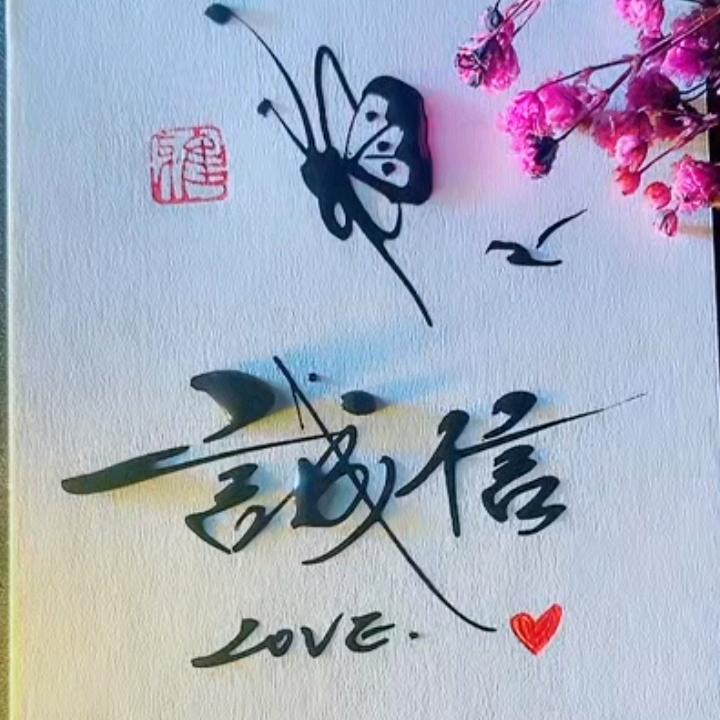 雅
誠信
LOVE.